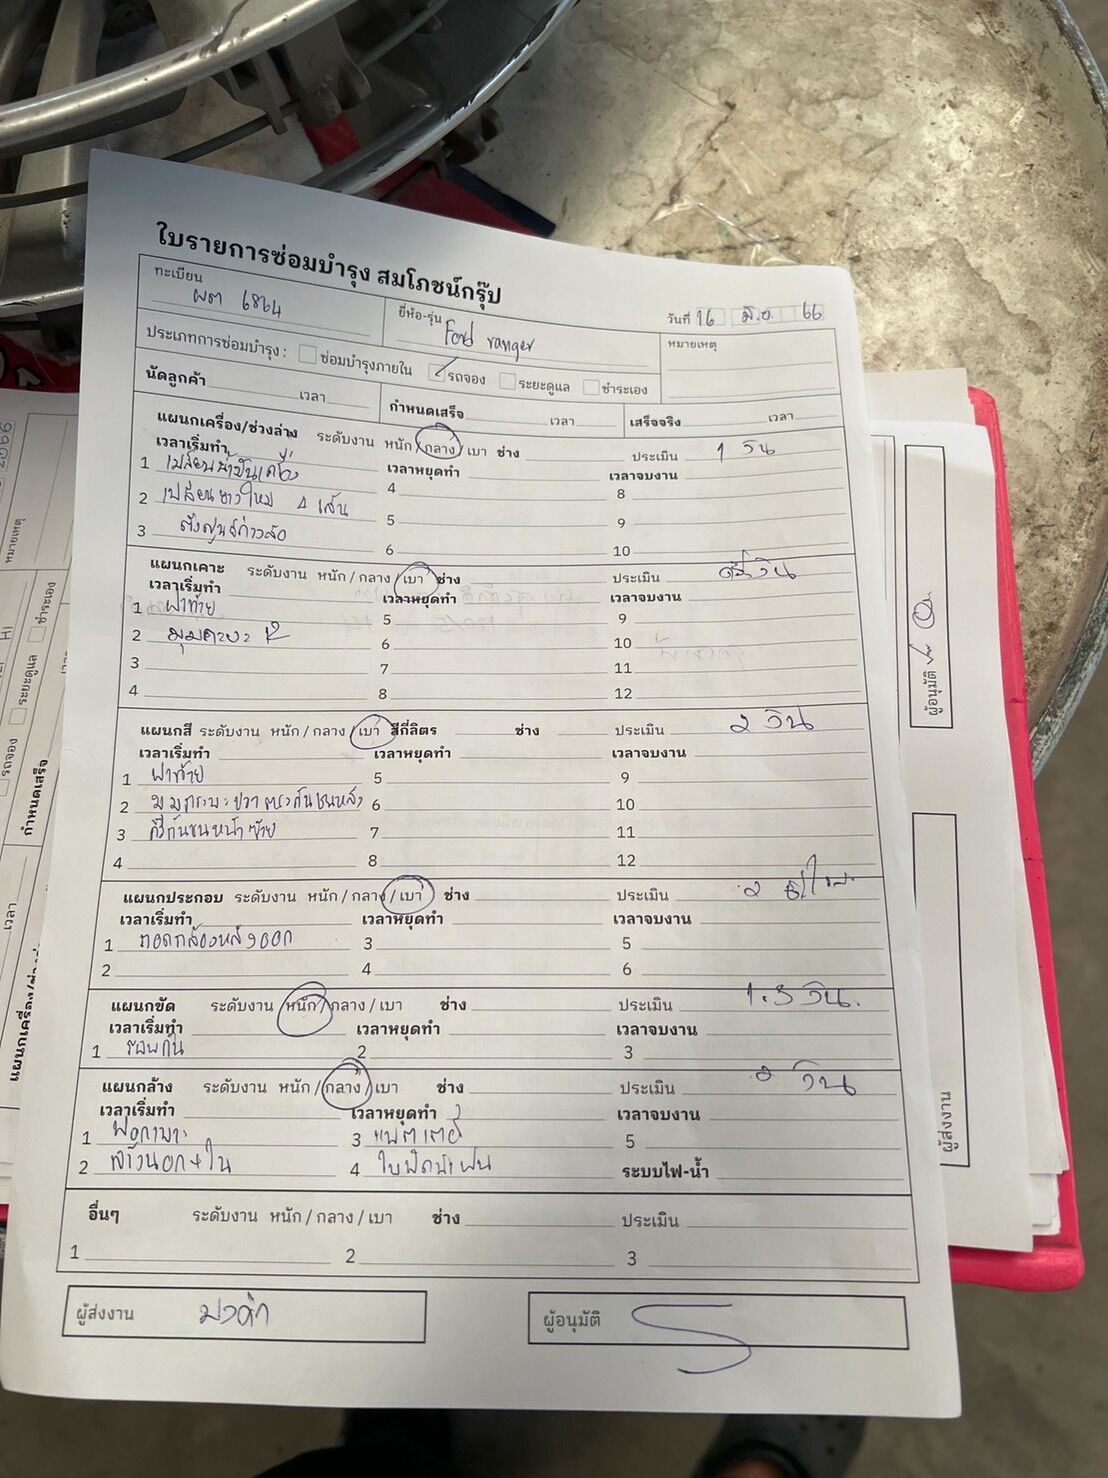 ใบรายการซ่อมบำรุง สมโภชน์กรุ๊ป
ทะเบียน ผต 6864 ยี่ห้อ-รุ่น Ford ranger วันที่ 16 มิ.ย. 66
ประเภทการซ่อมบำรุง : ซ่อมบำรุงภายใน รถจอง ระยะดูแล ชำระเอง หมายเหตุ
นัดลูกค้า เวลา กำหนดเสร็จ เวลา เสร็จจริง เวลา
แผนกเครื่อง/ช่วงล่าง ระดับงาน หนัก / กลาง / เบา ช่าง ประเมิน 1 วัน
เวลาเริ่มทำ เวลาหยุดทำ เวลาจบงาน
1 เปลี่ยนน้ำมันเครื่อง 4 8
2 เปลี่ยนยางใหม่ 4 เส้น 5 9
3 ตั้งศูนย์ถ่วงล้อ 6 10
แผนกเคาะ ระดับงาน หนัก / กลาง / เบา ช่าง ประเมิน ครึ่งวัน
เวลาเริ่มทำ เวลาหยุดทำ เวลาจบงาน
1 ฝาท้าย 5 9
2 มุมกระบะ R 6 10
3 7 11
4 8 12
แผนกสี ระดับงาน หนัก / กลาง / เบา สีกี่ลิตร ช่าง ประเมิน 2 วัน
เวลาเริ่มทำ เวลาหยุดทำ เวลาจบงาน
1 ฝาท้าย 5 9
2 มุมกระบะขวาตรงกันชนหลัง 6 10
3 คิ้วกันชนหน้าซ้าย 7 11
4 8 12
แผนกประกอบ ระดับงาน หนัก / กลาง / เบา ช่าง ประเมิน 2 ชั่วโมง
เวลาเริ่มทำ เวลาหยุดทำ เวลาจบงาน
1 ถอดกล้องหลังออก 3 5
2 4 6
แผนกขัด ระดับงาน หนัก / กลาง / เบา ช่าง ประเมิน 1.5 วัน.
เวลาเริ่มทำ เวลาหยุดทำ เวลาจบงาน
1 รอบคัน 2 3
แผนกล้าง ระดับงาน หนัก / กลาง / เบา ช่าง ประเมิน วัน
เวลาเริ่มทำ เวลาหยุดทำ เวลาจบงาน
1 3 แบตเตอรี่ 5
2 ล้างนอก+ใน 4 ใบปัดน้ำฝน ระบบไฟ-น้ำ
อื่นๆ ระดับงาน หนัก / กลาง / เบา ช่าง ประเมิน
1 2 3
ผู้ส่งงาน ผู้อนุมัติ
หมายเหตุ
รถจอง ระยะดูแล ชำระเอง
กำหนดเสร็จ
เวลา
ผู้อนุมัติ
ผู้ส่งงาน